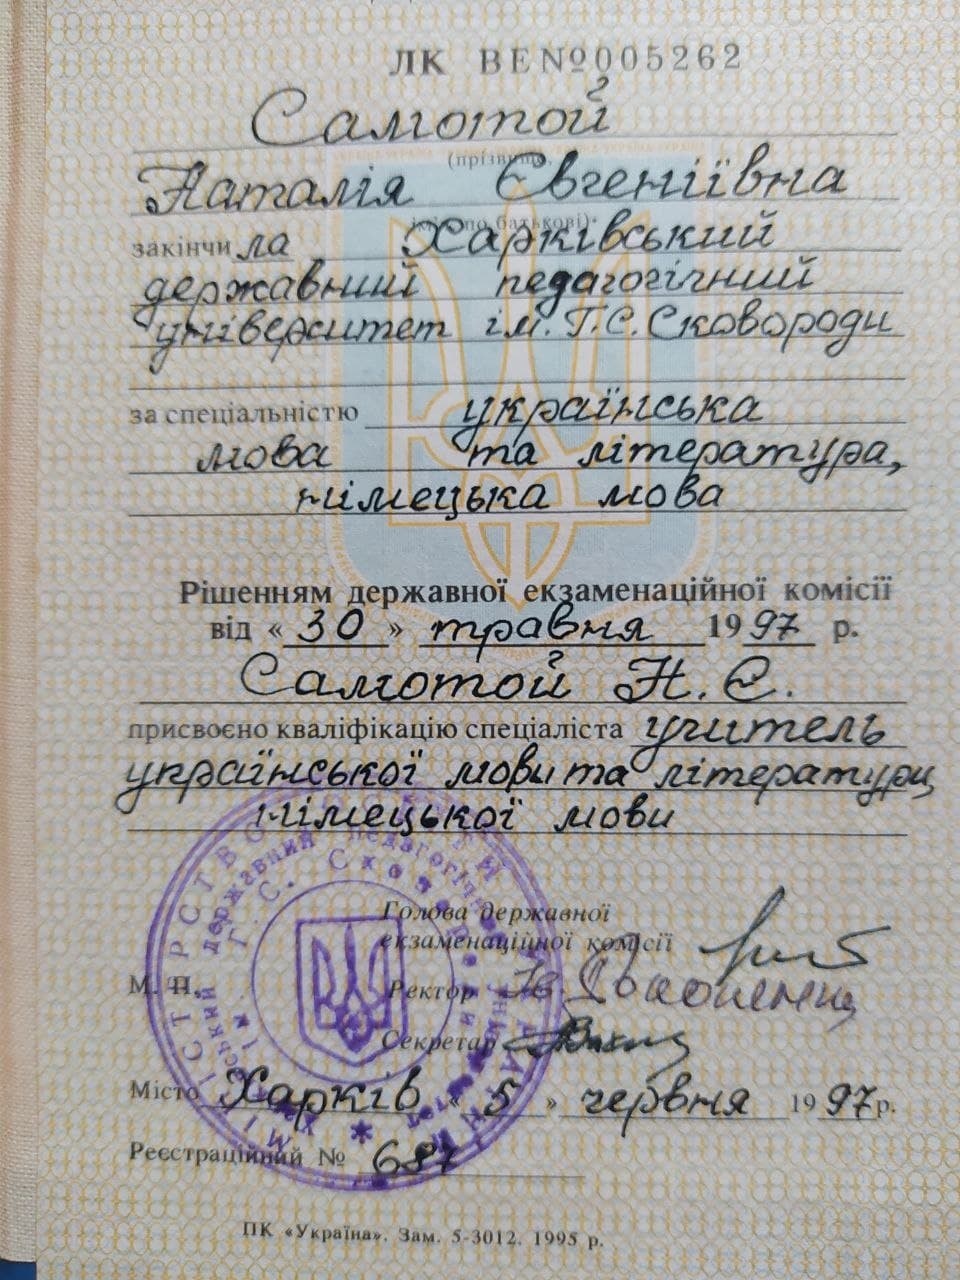 ЛК ВЕ№005262
Самотой
(прізвище,
Наталія Євгеніївна
ім'я, по батькові)
закінчила Харківський
державний педагогічний
університет ім. Г.С. Сковороди
за спеціальністю українська
мова та література,
німецька мова
Рішенням державної екзаменаційної комісії
від « 30 » травня 1997 р.
Самотой Н. Є.
присвоєно кваліфікацію спеціаліста учитель
української мови та літератури,
німецької мови
Голова державної
екзаменаційної комісії
М. П.
Ректор
Секретар
Місто Харків « 5 » червня 1997 р.
Реєстраційний № 687
ПК «Україна». Зам. 5-3012. 1995 р.